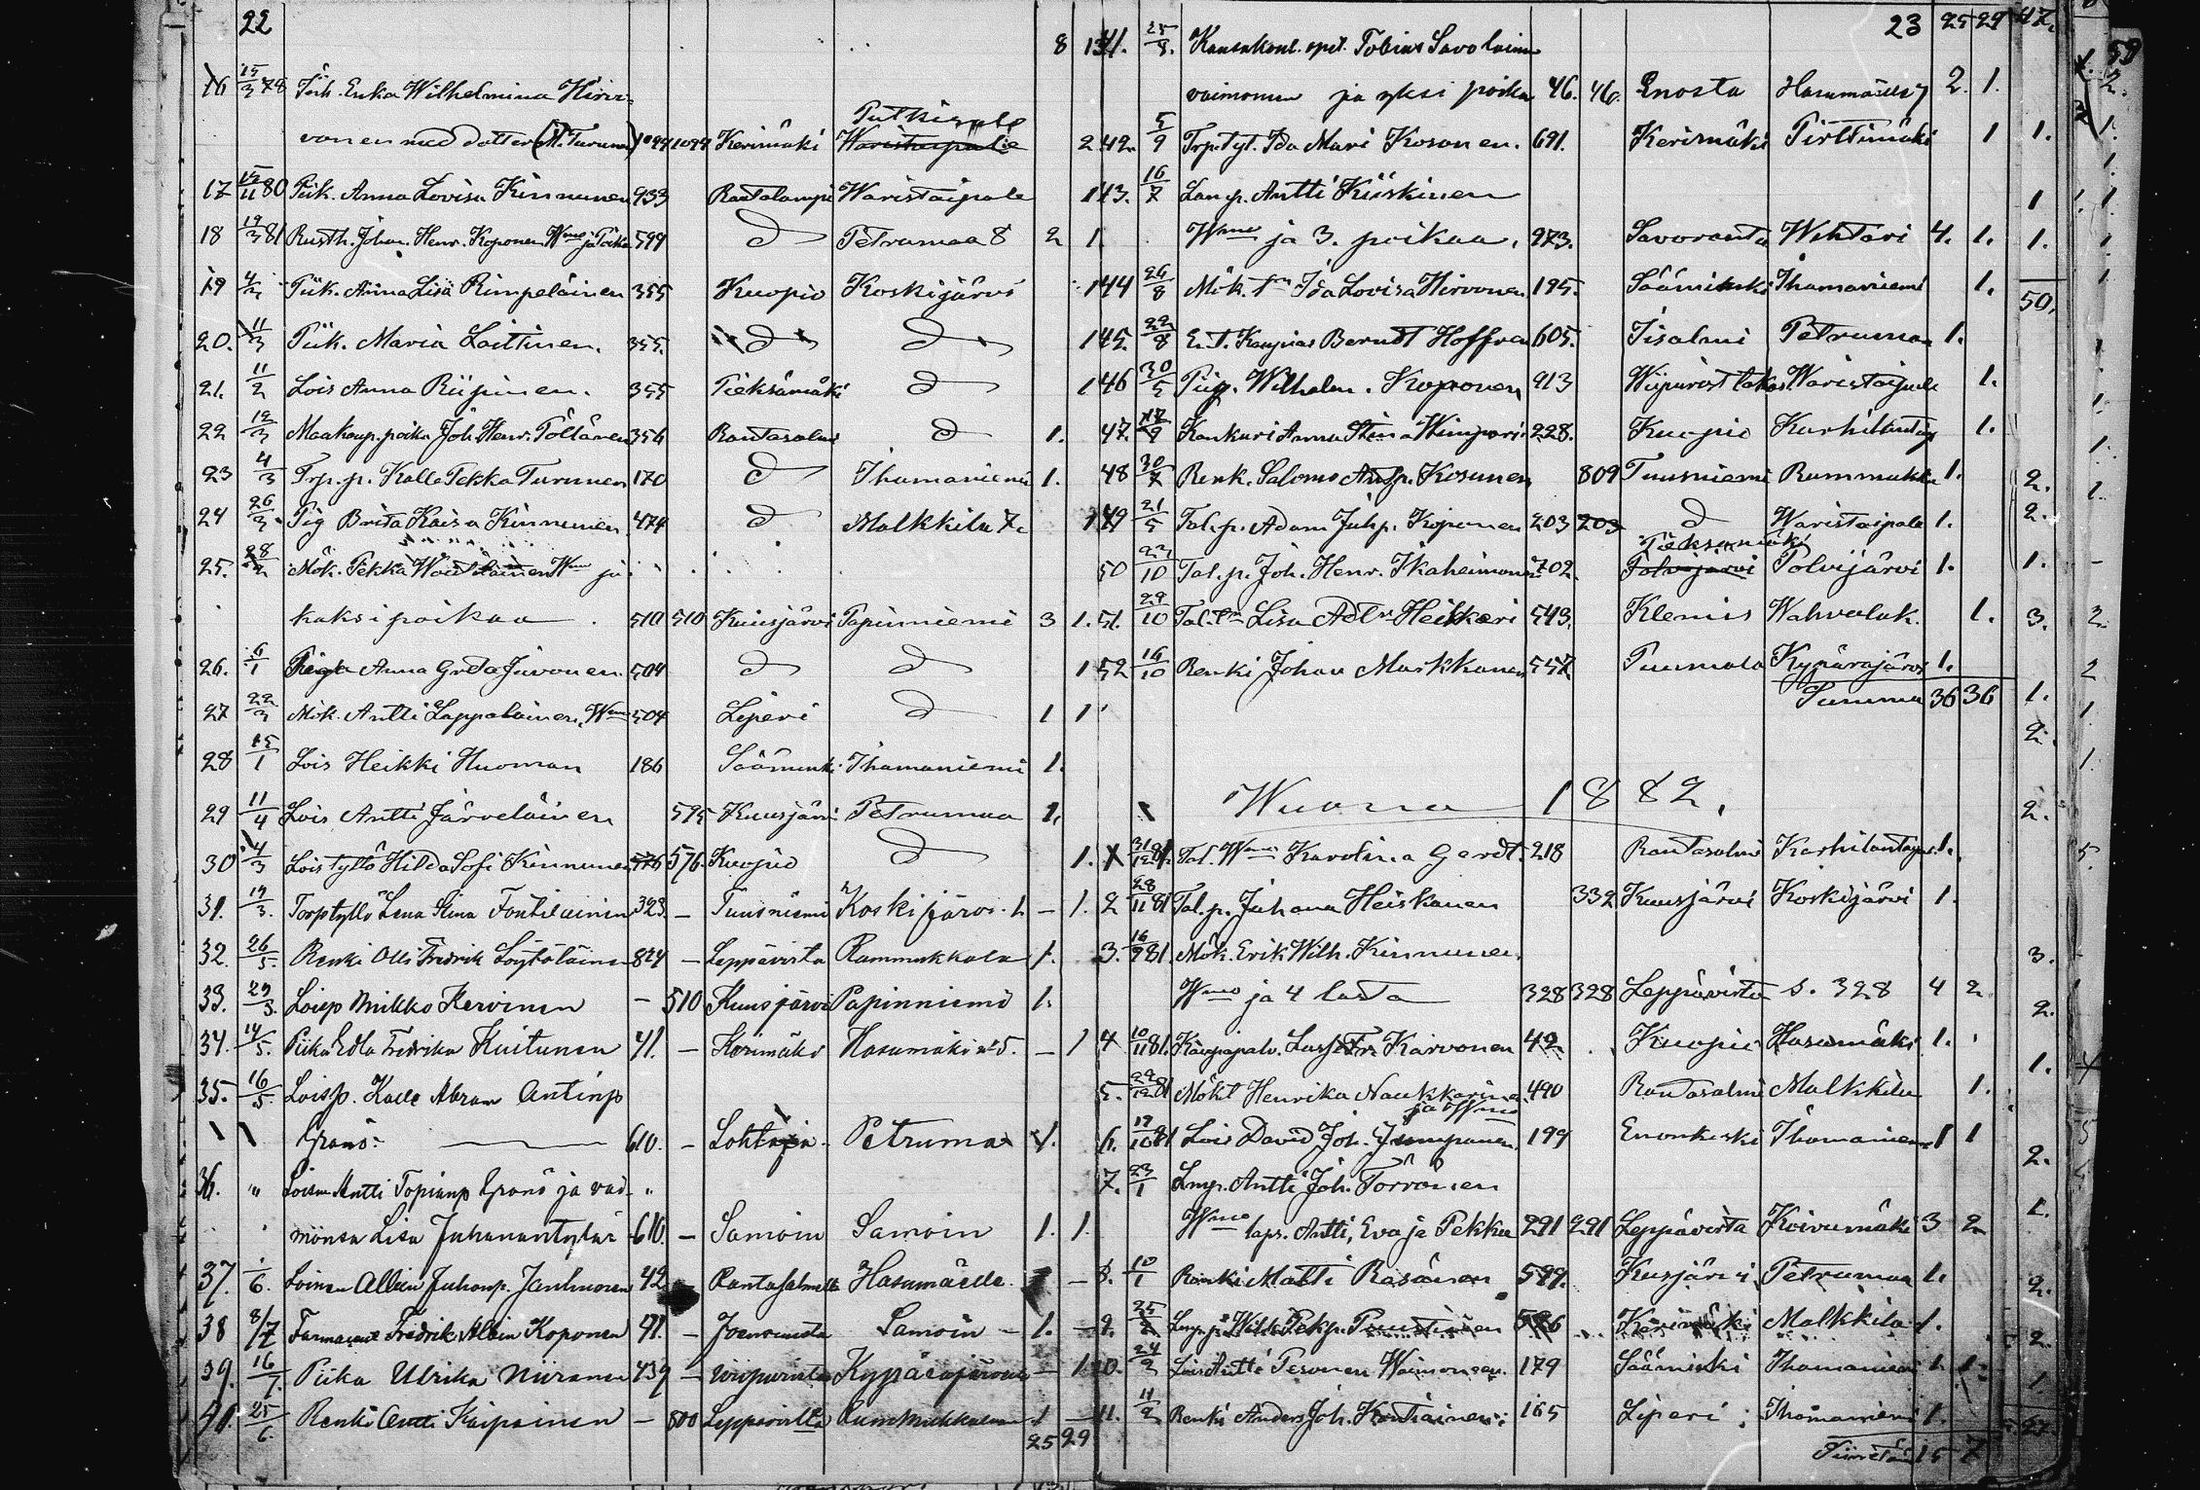 22
8 13
16 15/3 78 Enka Wilhelmina Hirvonen
Putkisalo
vonen med dotter (M. Turunen) 1094 1094 Kerimäki Waristaipale 2
17 15/11 80 Piik. Anna Lovisa Kinnunen 933 Rantalampi Waristaipale 1
18 19/3 81 Rusth. Johan Henr. Koponen Wmo ja Poika 599 d Petrumaa 8 2 1
19 4/3 Piik. Anna Lisa Rimpeläinen 355 Kuopio Koskijärvi 1
20. 11/3 Piik. Maria Laittinen. 355. d d 1
21. 11/2 Lois Anna Riipinen. 355 Pieksämäki d 1
22 12/3 Maakaup. poika Joh. Henr. Pöllänen 356 Rantasalmi d 1.
23 4/3 Trp. p. Kalle Pekka Turunen 170 d Ihamaniemi 1.
24 26/3 Pig Brita Kaisa Kinnunen 474 d Malkkila 7. 1
25. 28/2 Mök. Pekka Wäätäinen Wmo ja
kaksi poikaa 510 510 Kuusjärvi Papinniemi 3 1.
26. 6/1 Piiga Anna Greta Juvonen 504 d d 1
27 22/3 Mök. Antti Lappalainen, Wmo 504 Liperi d 1 1
28 15/1 Lois Heikki Huoman 186 Sääminki Ihamaniemi 1.
29 11/4 Lois Antti Järveläinen 595 Kuusjärvi Petrumaa 1.
30 4/3 Lois tyttö Hilda Sofi Kinnunen 576 576. Kuopio d 1.
31. 19/3. Torptyttö Lena Stina Fontilainen 323. — Tuusniemi Koskijärvi 2 — 1.
32. 26/5. Renki Olli Fredrik Löytöläinen 824 — Leppävirta Rummukkala 1.
33. 29/3. Loisp Mikko Kervinen — 510 Kuusjärvi Papinniemi 1.
34. 14/5. Piika Edla Fredrika Kuitunen 41. — Kerimäki Hasumäki no 5. — 1
35. 16/5. Loisp. Kalle Abram Antinp
Granö 610. — Lohtaja Petrumaa 1.
36. " Loism Antti Topianp Granö ja vai- "
monsa Lisa Juhanantytär 610. — Samoin Samoin 1. 1.
37. /6. Loinen Albin Juhonp. Janhunen 42 Rantasalmelta Hasumäelle 1 —
38 8/7 Farmaceut Fredrik Albin Koponen 41. — Joensuusta Samoin — 1. —
39. 16/7. Piika Ulrika Niiranen 439 — Wiipurista Kypäräjärvelle — 1
40. 25/6. Renki Antti Kaipainen — 800 Leppävirta Rummukkalaan 1 —
25 29
23 25 29 47.
41. 25/8. Kansakoul. opet. Tobias Savolainen
vaimonsa ja yksi poika 46. 46. Enosta Hasumäelle 7 2. 1.
42. 5/9 Trp. tyt. Ida Mari Kosonen. 691. Kerimäki Pirttimäki 1 1.
43. 16/7 Lamp. Antti Kiiskinen 1
Wmo ja 3. poikaa, 973. Savoranta Wihtari 4. 1. 1.
44 26/8 Mök. tr Ida Lovisa Hirvonen 195. Sääminki Ihamaniemi 1. 50.
45. 22/8 Ent. Kauppias Berndt Hoffren 605. Iisalmi Petrumaa 1.
46 30/5 Piig. Wilhelm. Koponen 913 Wiipurist takas. Waristaipale 1.
47. 17/9 Kankuri Anna Stina Wimpari 228. Kuopio Karhilantaus 1.
48 30/7 Renk. Salomo Andp. Kosunen 809 Tuusniemi Rummukka 1. 2.
49 21/5 Tal. p. Adam Juhp. Koponen 203 203 d Waristaipale 1. 2.
Pieksämäki
50 22/10 Tal. p. Joh. Henr. Ikäheimonen 702. Polvijärvi Polvijärvi 1. 1.
51. 29/10 Tal. tr Lisa Adl. Heiskari 543. Klemis Wahvalak. 1. 3.
52 16/10 Renki Johan Markkanen 557. Puumala Kypäräjärvi 1.
Summa 36 36 1.
2.
Wuonna 1882. 2.
1 31/12 81. Tal. Wmo Karolina Gerdt. 218 Rantasalmi Karhilantaus 1.
2 28/11 81 Tal. p. Juhana Heiskanen 332 Kuusjärvi Koskijärvi 1.
3. 16/9 81. Mök. Erik Wilh. Kinnunen. 3.
Wmo ja 4 lasta 328 328 Leppävirta s. 328 4 2 2.
4 10/11 81. Kauppapalv. Lars Fr. Karvonen 42 Kuopio Hasumäki 1.
5. 22/12 81 Mökl Henrika Naukkarinen 490 Rantasalmi Malkkila 1.
ja Wmo
6. 19/10 81 Lois David Joh. Jumpponen 199 Enonkoski Ihamaniemi 1 1 2.
7. 23/1 Lmp. Antti Joh. Torvonen
Wmo laps. Antti, Eva ja Pekka 291 291 Leppävirta Koivumäki 3 2 1.
8. 10/1 Renki Matti Räsänen 599. Kusjärvi Petrumaa 1. 2.
9. 25/2 Lmp. p. Wilh. Pekp. Puustinen 586 Kerimäki Malkkila 1. 2.
10. 24/2 Lois Antti Pesonen Waimoneen. 179 Sääminki Ihamaniemi 1. 1. 1
11. 11/2 Renki Anders Joh. Kontiainen 165 Liperi Ihamaniemi 1.
Siiretään 15 7